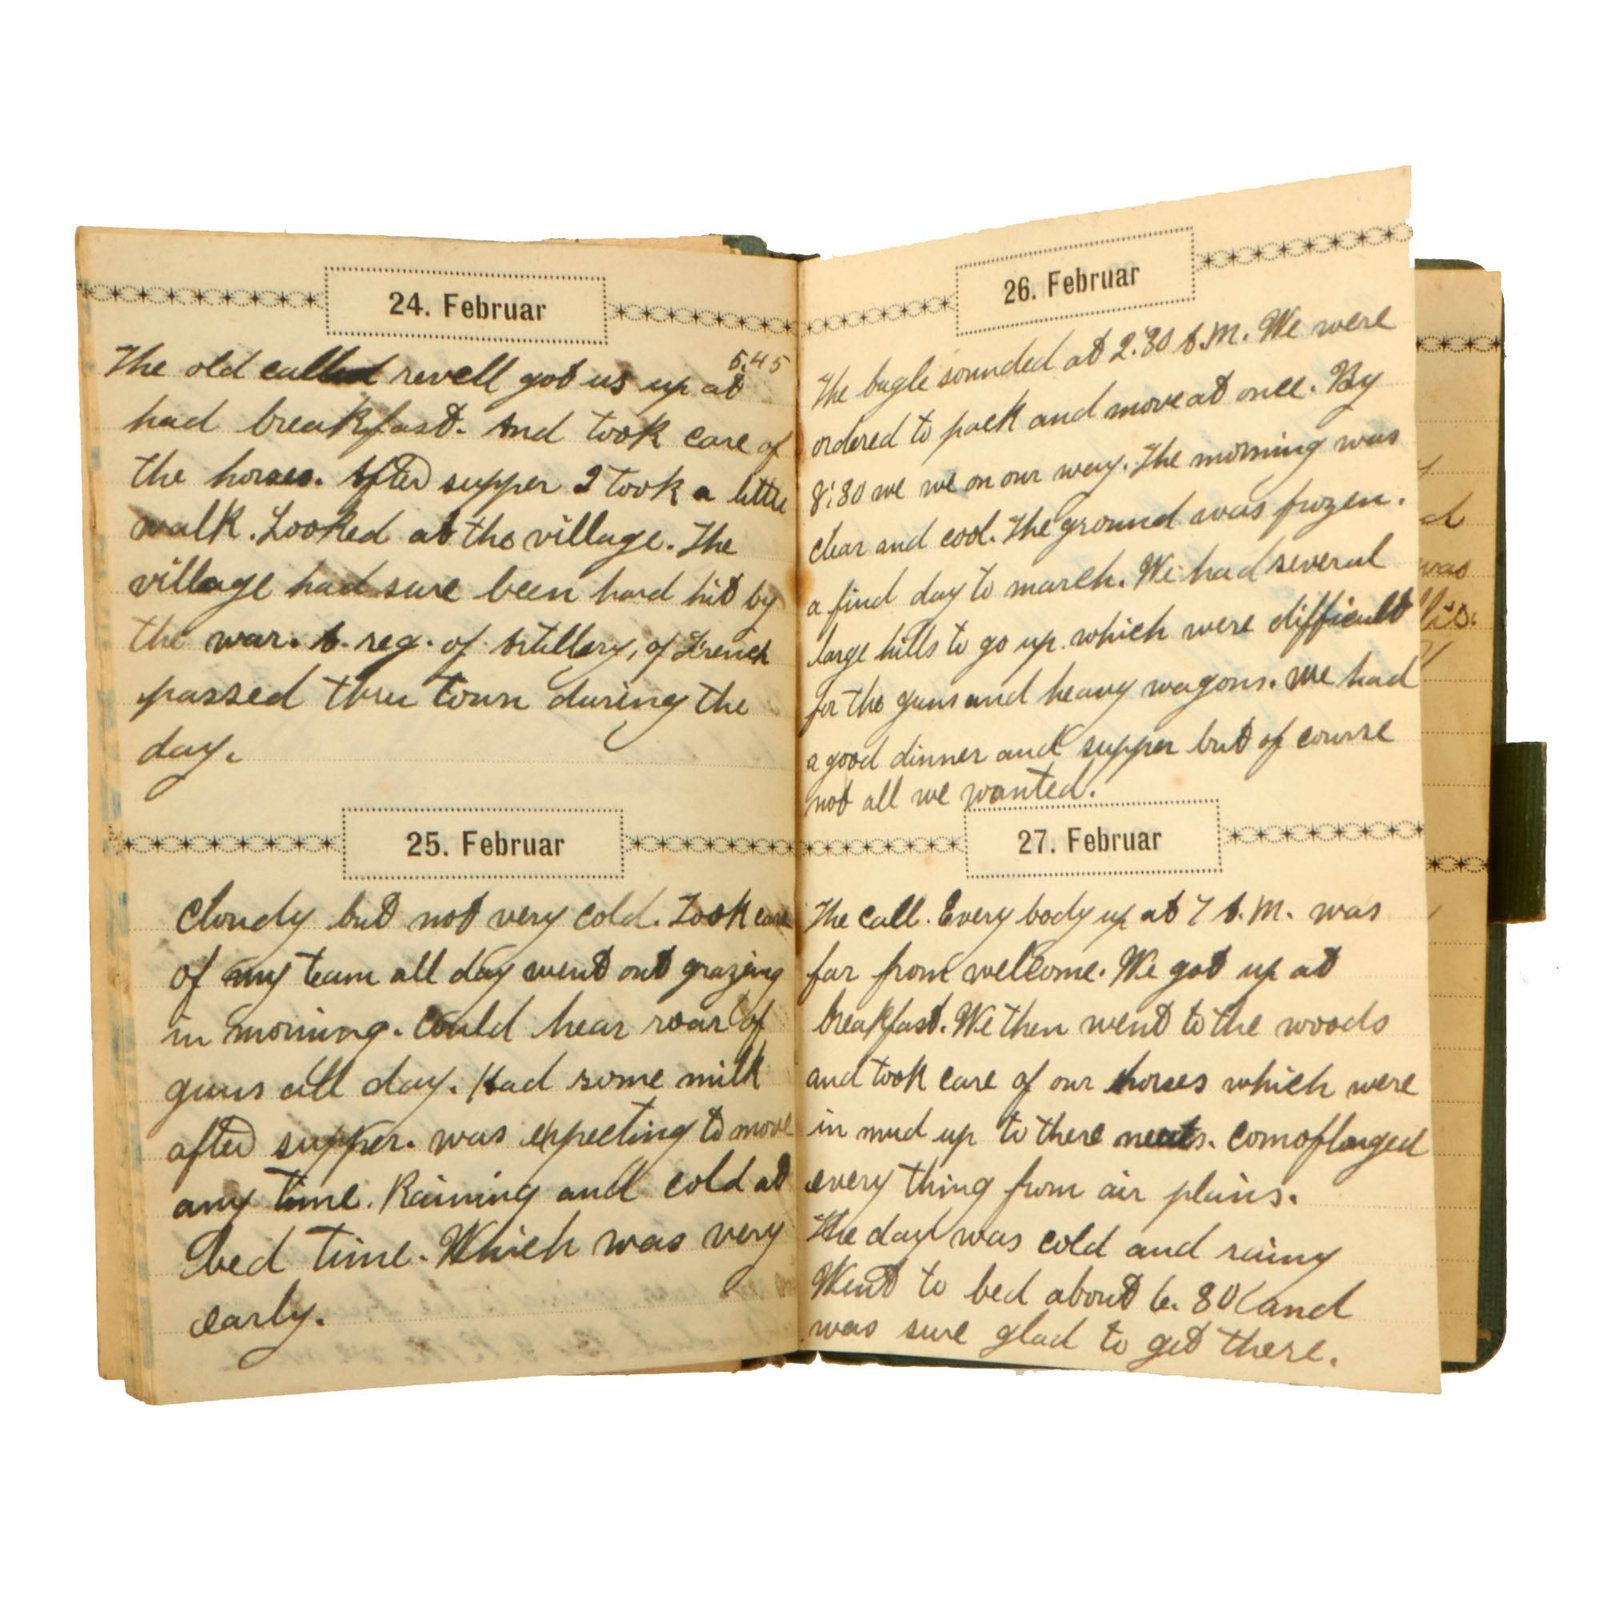 24. Februar
The old called revell got us up at 5.45
had breakfast. And took care of
the horses. After supper I took a little
walk. Looked at the village. The
village had sure been hard hit by
the war. A. reg. of Artillery, of French
passed thru town during the
day.
25. Februar
Cloudy but not very cold. Took care
of my team all day went out grazing
in morning. Could hear roar of
guns all day. Had some milk
after supper. was expecting to move
any time. Raining and cold at
bed time. Which was very
early.
26. Februar
The bugle sounded at 2:30 A.M. We were
ordered to pack and move at once. By
8:30 we we on our way. The morning was
clear and cool. The ground was frozen.
a find day to march. We had several
large hills to go up which were difficult
for the guns and heavy wagons. We had
a good dinner and supper but of course
not all we wanted.
27. Februar
The call. Every body up at 7 A.M. was
far from wellcome. We got up at
breakfast. We then went to the woods
and took care of our horses which were
in mud up to there. comoflarged
every thing from air plains.
The day was cold and rainy
Went to bed about 6.30 and
was sure glad to get there.